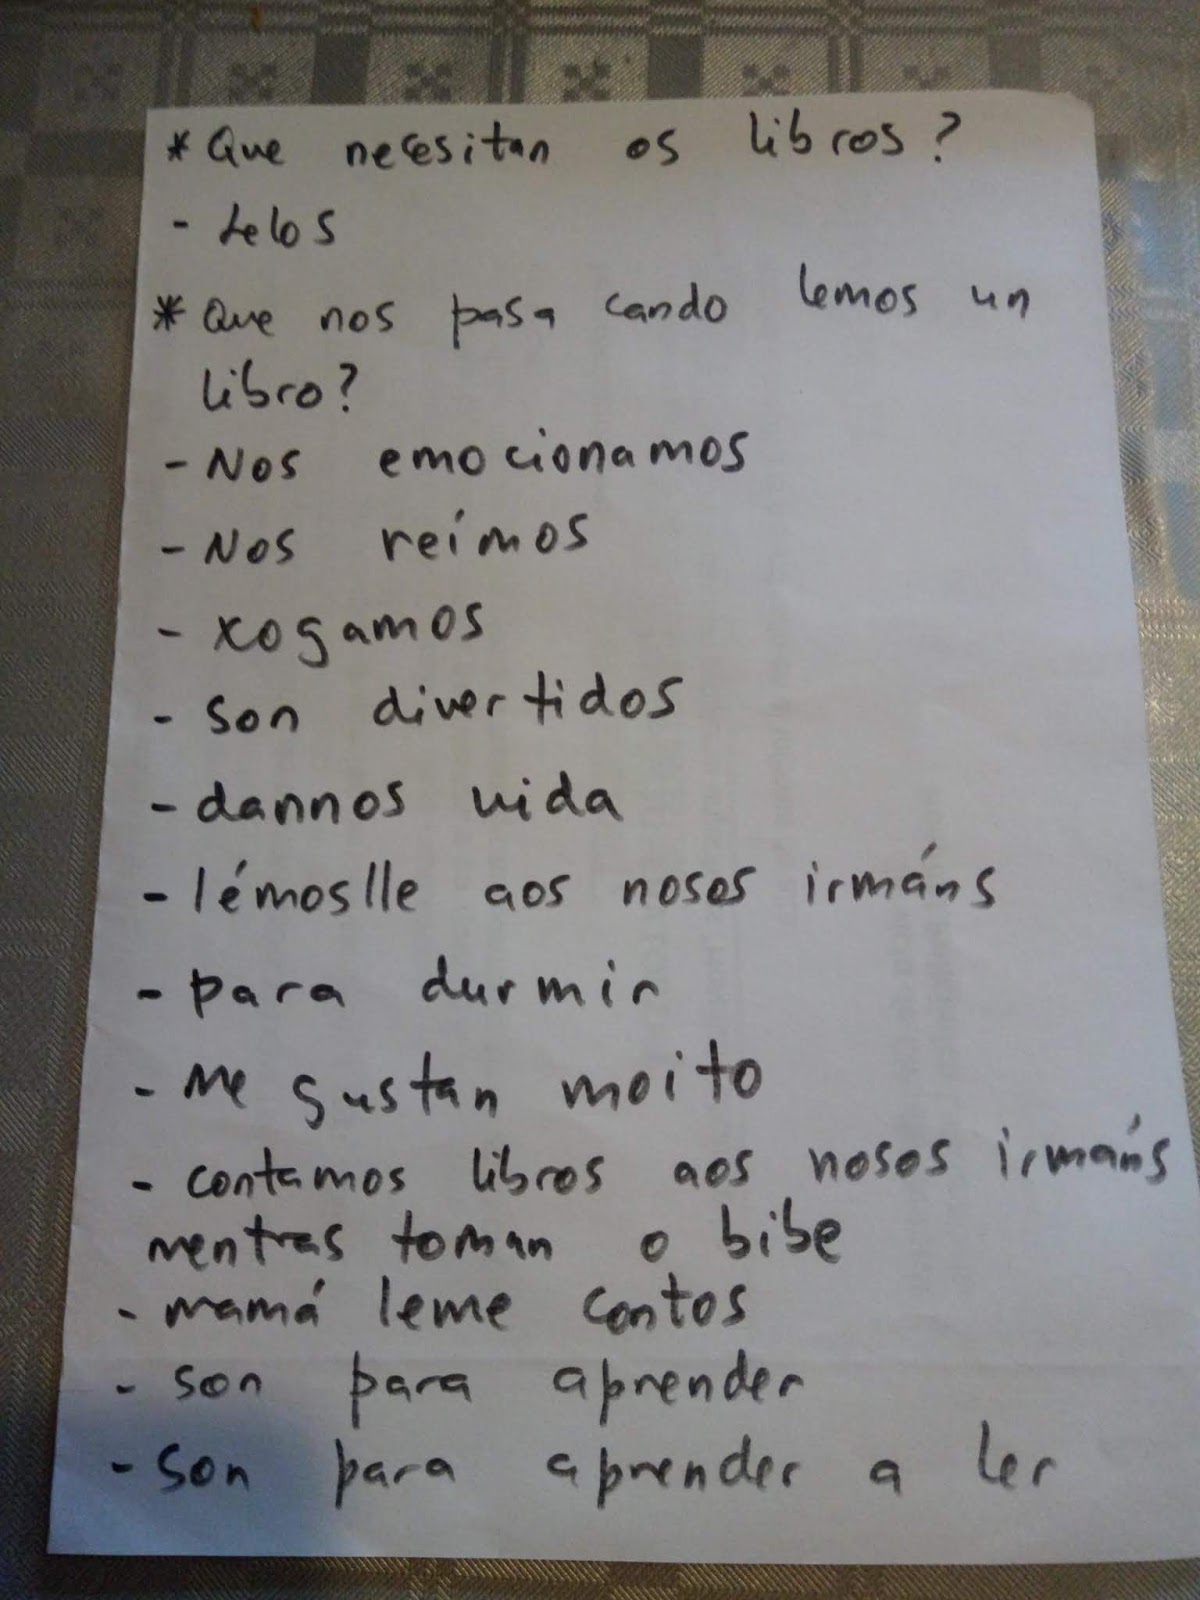 * Que necesitan os libros?
- Lelos
* Que nos pasa cando lemos un
libro?
- Nos emocionamos
- Nos reímos
- xogamos
- son divertidos
- dannos vida
- lémoslle aos nosos irmáns
- para durmir
- Me gustan moito
- contamos libros aos nosos irmáns
mentras toman o bibe
- mamá leme contos
- son para aprender
- son para aprender a ler